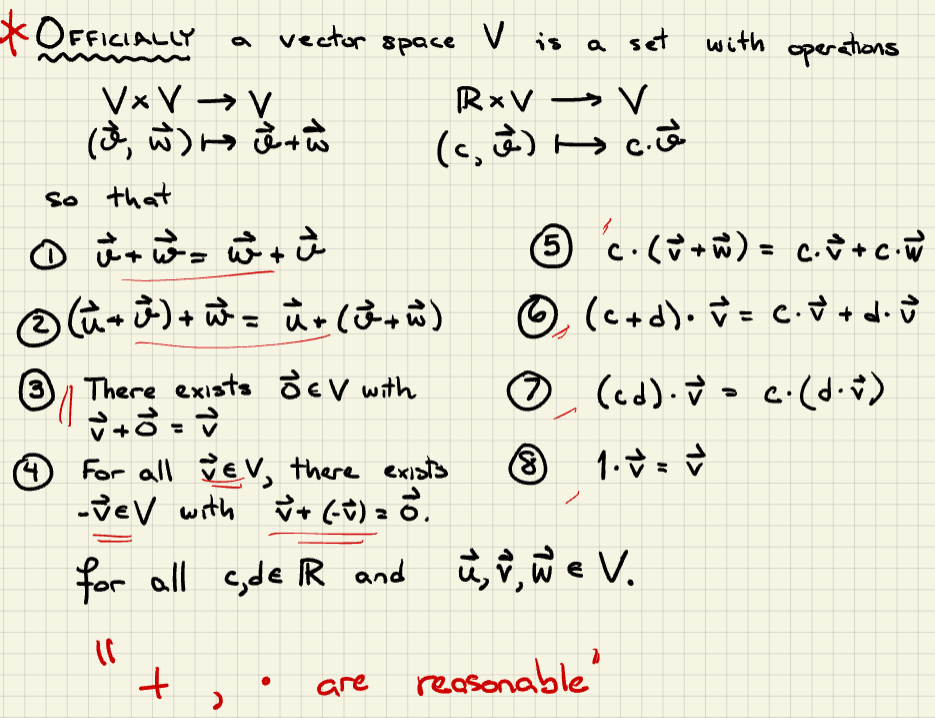 * OFFICIALLY a vector space V is a set with operations
V × V → V
(v⃗, w⃗) ↦ v⃗ + w⃗
ℝ × V → V
(c, v⃗) ↦ c·v⃗
so that
① v⃗ + w⃗ = w⃗ + v⃗
② (u⃗ + v⃗) + w⃗ = u⃗ + (v⃗ + w⃗)
③ There exists 0⃗ ∈ V with
v⃗ + 0⃗ = v⃗
④ For all v⃗ ∈ V, there exists
-v⃗ ∈ V with v⃗ + (-v⃗) = 0⃗.
⑤ c·(v⃗ + w⃗) = c·v⃗ + c·w⃗
⑥ (c+d)·v⃗ = c·v⃗ + d·v⃗
⑦ (cd)·v⃗ = c·(d·v⃗)
⑧ 1·v⃗ = v⃗
for all c,d ∈ ℝ and u⃗, v⃗, w⃗ ∈ V.
"+, · are reasonable"